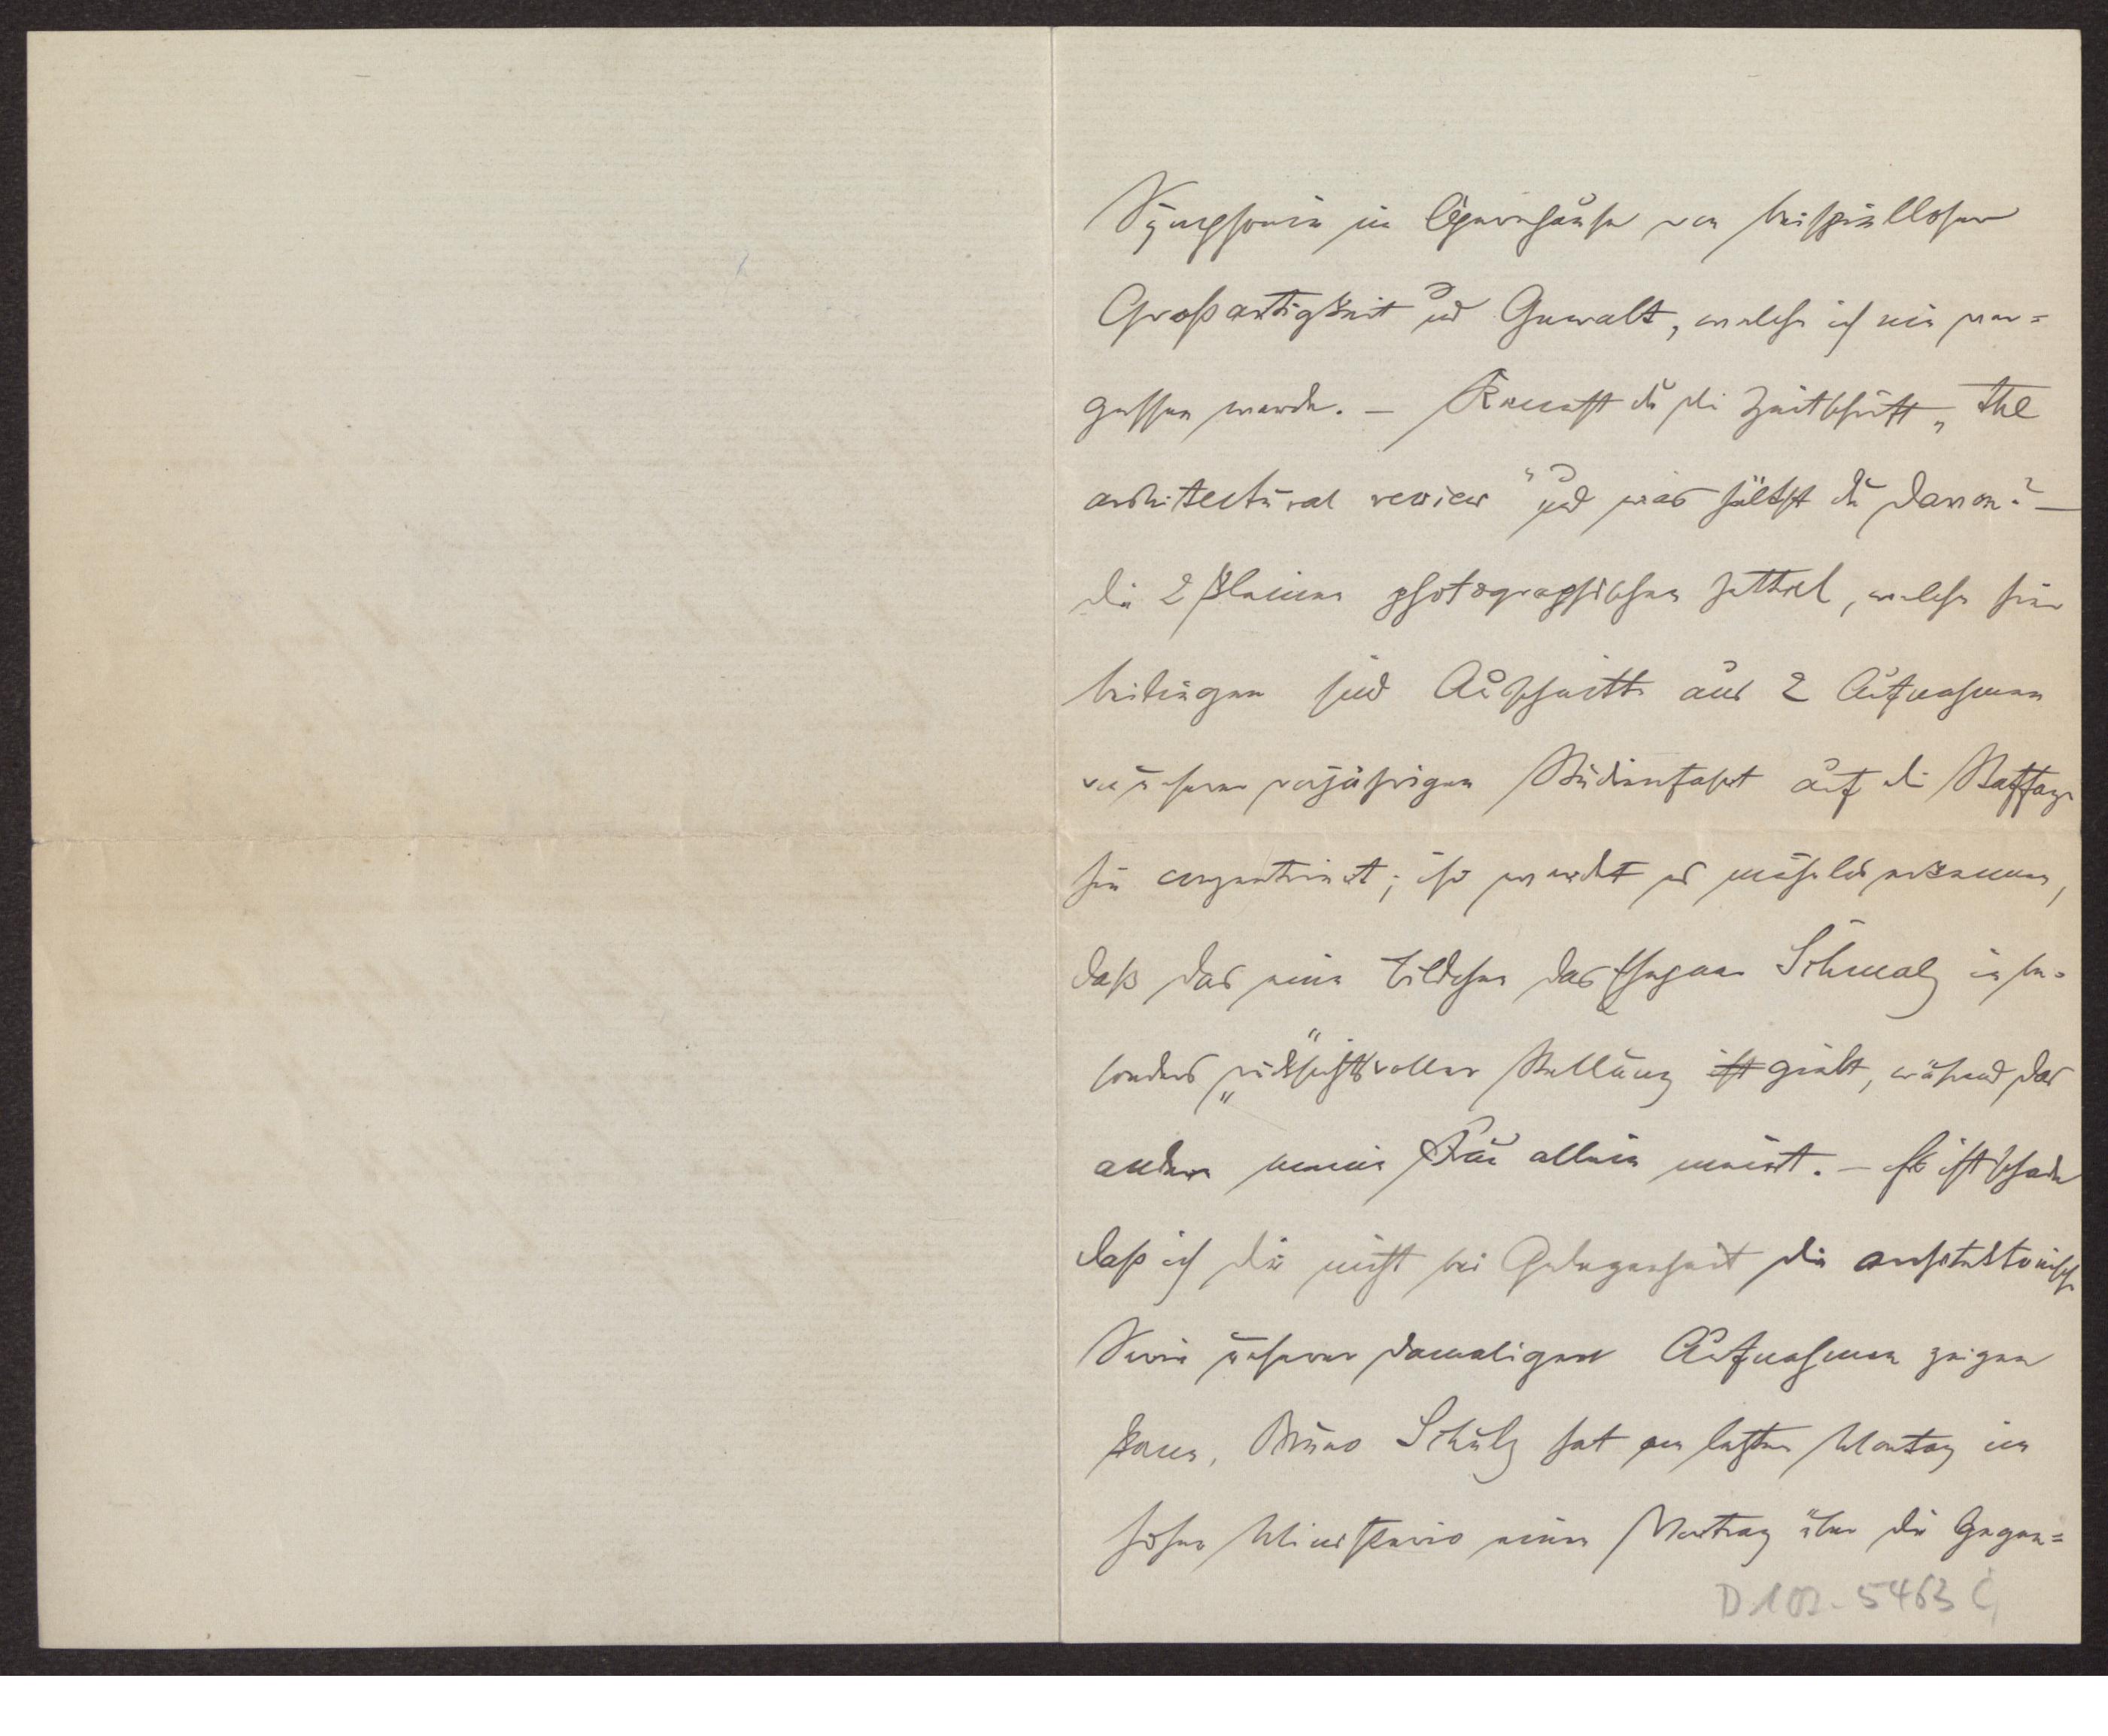 Symphonie im Opernhause von beispielloser
Großartigkeit und Gewalt, welche ich nie ver=
gessen werde. – Kennst du die Zeitschrift „the
architectural review“ und was hältst du davon? –
die 2 kleinen photographischen Zettel, welche hier
beiliegen sind Ausschnitte aus 2 Aufnahmen
unserer vorjährigen Studienfahrt auf die Staffage
hin conzentriert; ihr werdet es mühelos erkennen,
daß das eine Bildchen das Ehepaar Schmalz in be=
sonders „rücksichtsvoller“ Stellung ist giebt, während das
andere meine Frau allein meint. – Es ist schade
daß ich dir nicht bei Gelegenheit die architektonische
Serie unserer damaligen Aufnahmen zeigen
kann, Bruno Schulz hat am letzten Montag im
hohen Ministerio einen Vortrag über die Gegen=
D 102-5463